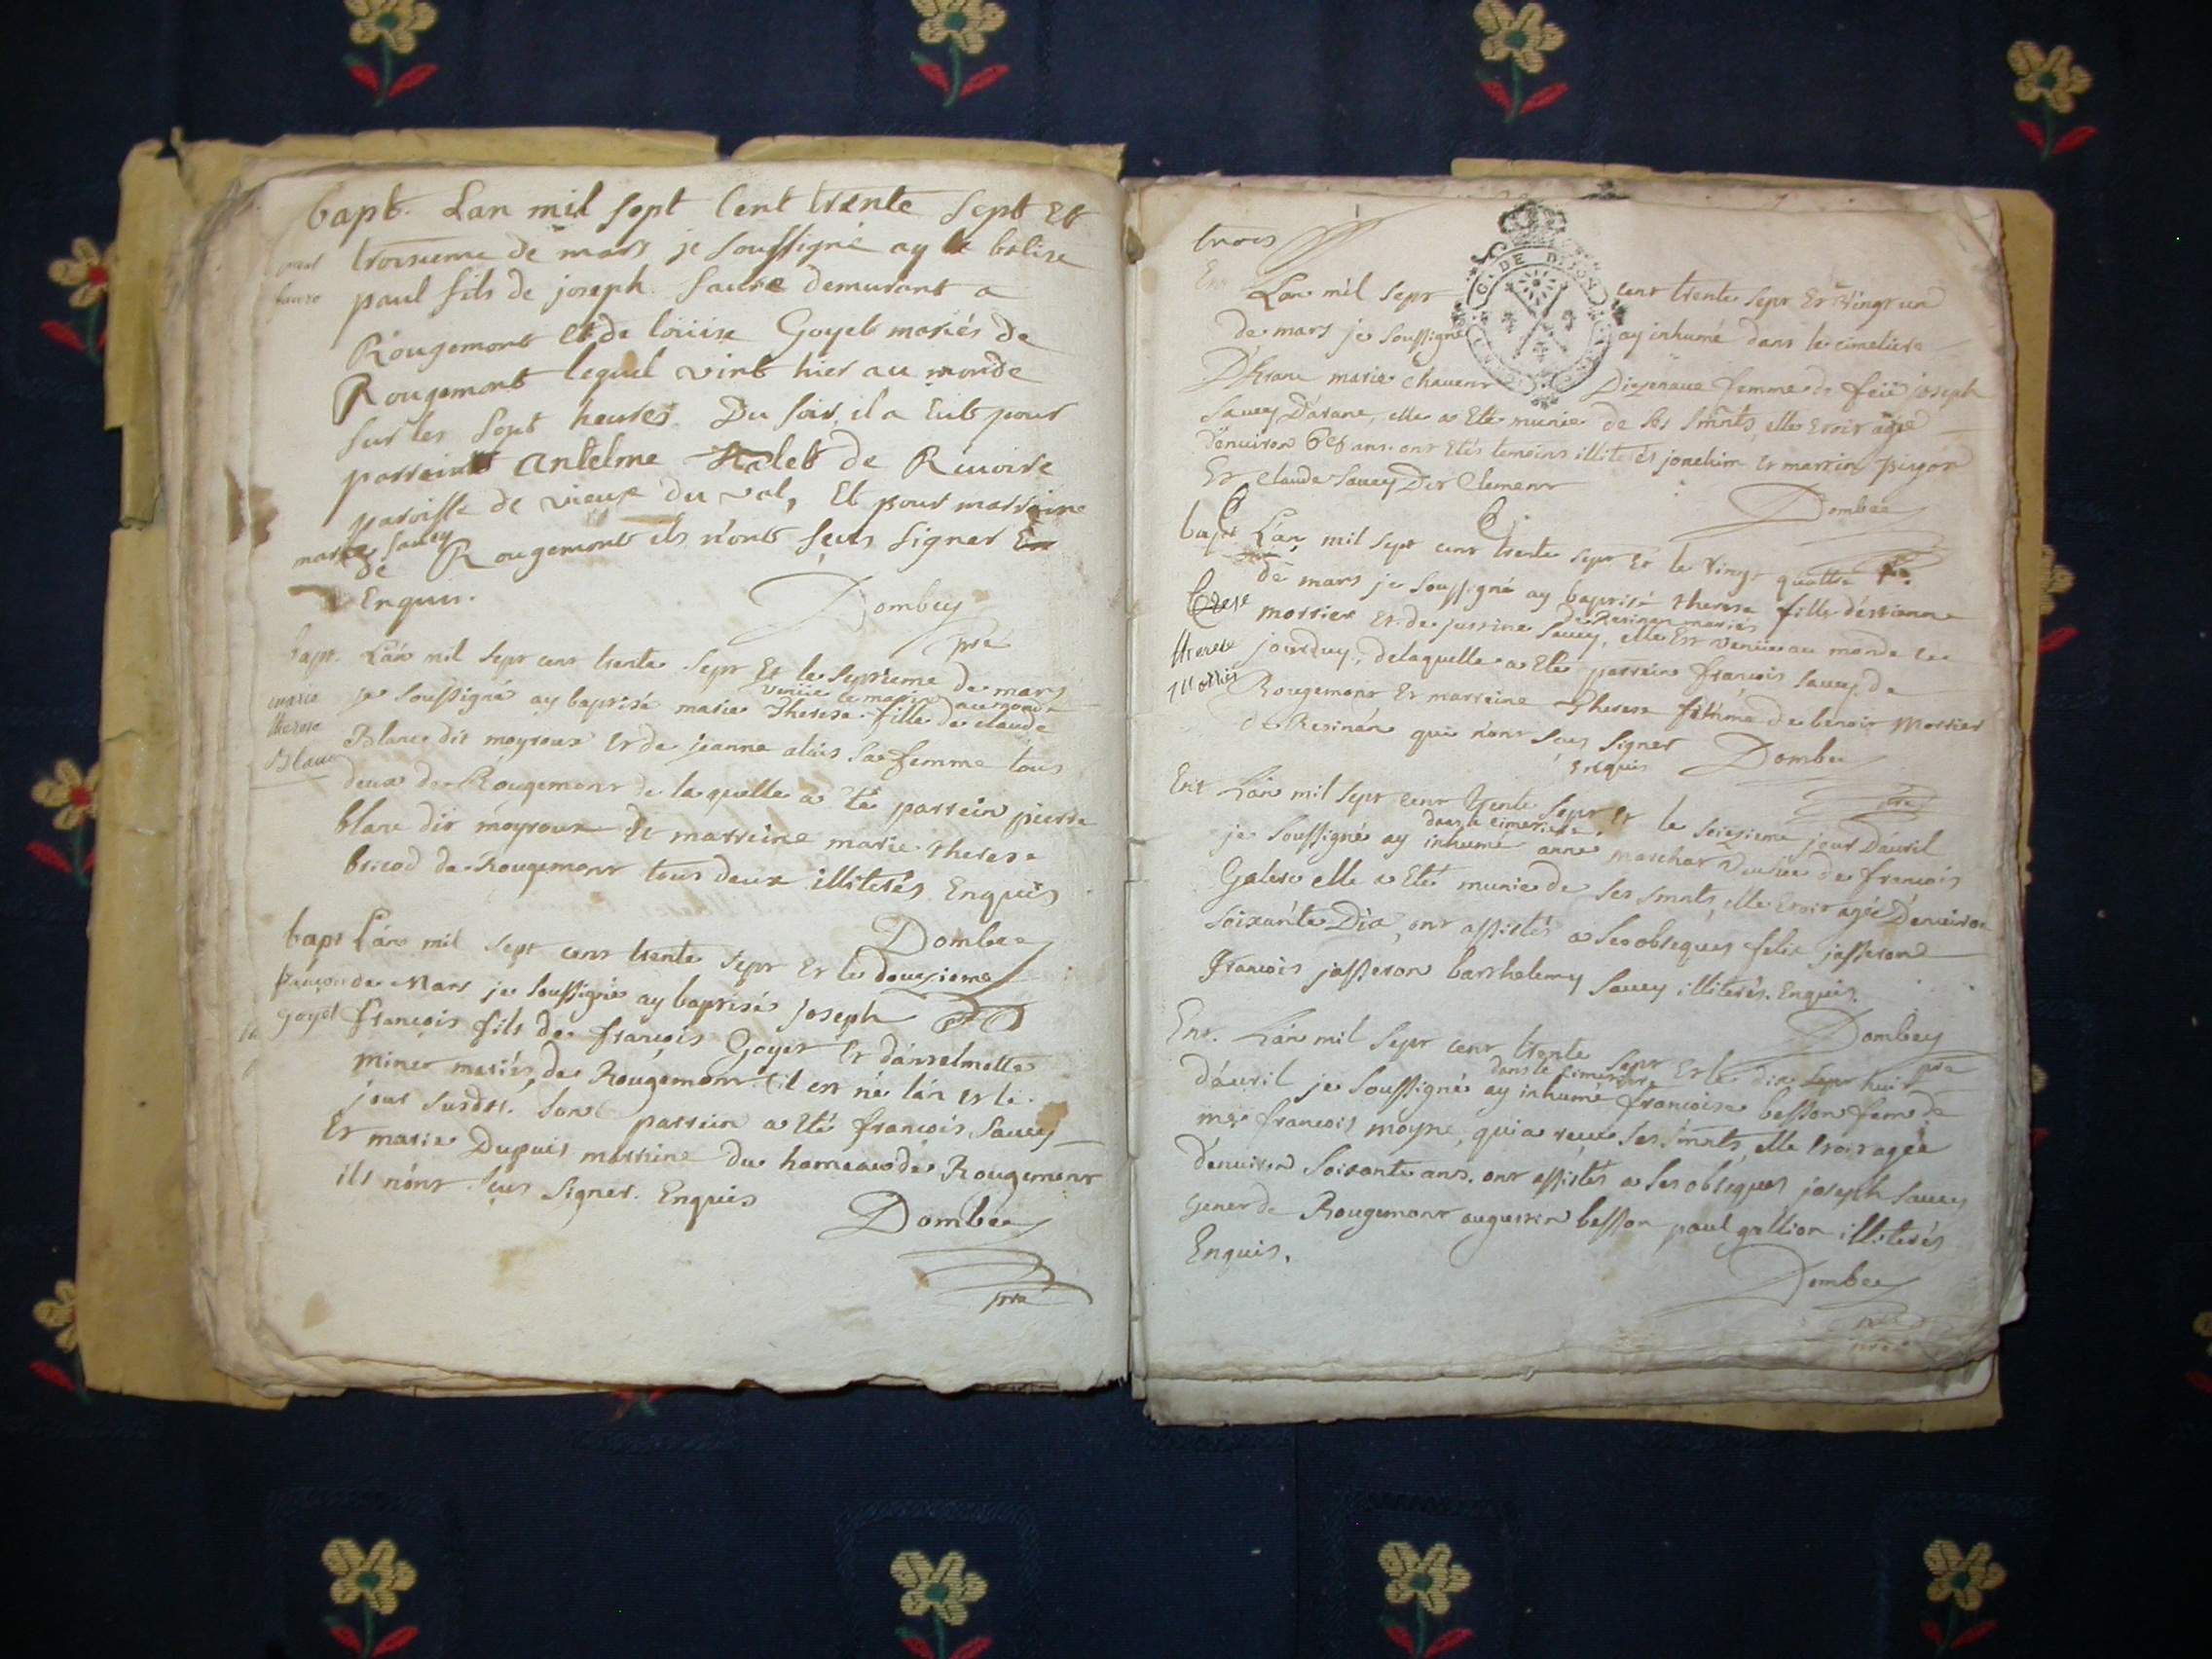 bapt. Lan mil sept Cent trente sept Et
troisieme de mars je soussigné ay batise
paul
faure
paul fils de joseph faure demurant a
Rougemont et de loüise Goyet mariés de
Rougemont lequel vint hier au monde
sur les sept heures Du soir, il a Eut pour
parrain Antelme de Rivoire
paroisse de vieux du val, Et pour marraine
marie Saucy
de Rougemont ils n'ont seus signer
Enquis.
Dombey
pre
bapt. L'an mil sept cent trente sept Et le septieme de mars
marie
therese
Blanc
venüe le matin au monde
je soussigné ay baptisé marie Therese fille de claude
Blanc dit moyroux et de jeanne alais sa femme tous
deux de Rougemont de laquelle a été parrein pierre
blanc dit moyroux et marreine marie therese
bricod de Rougemont tous deux illiterés Enquis
Dombey
bapt L'an mil sept cent trente sept Et le douzieme
francois
goyet
de Mars je soussigné ay baptisé joseph
francois fils de francois Goyet Et d'anselmette
minet mariés, de Rougemont (il est né l'an et le
jour susdit. Son parrein a Eté francois Saucy
Et marie Dupuis marreine du hameau de Rougemont
ils n'ont sus signer. Enquis
Dombey
pre
trois
Ent
L'an mil sept cent trente sept Et vingt un
de mars je soussigné ay inhumé dans le cimetiere
D'Arane marie chavent femme de feü joseph
Saucy D'arane, elle a Eté munie de ses smnts, elle Etoit agée
d'environ ans. ont Etés temoins illiterés joachim Et martin pingon
Et Claude Saucy Dit Clement
Dombey
bapt L'an mil sept cent trente sept Et le vingt quattre
therese
mortier
de mars je soussigné ay baptisé therese fille d'estienne
de Resinan mariés
mortier Et de justine Saucy, elle Est venüe au monde le
jourduy, delaquelle a Eté parrein francois Saucy de
Rougemont Et marreine Therese femme de benoit Mortier
de Resinan qui n'ont seus signer
Enquis
Dombey
pre
Ent L'an mil sept cent trente sept Et le seizieme jour D'avril
dans le cimetiere
je soussigné ay inhumé anne marchat veuve de francois
Galet elle a Eté munie de ses smnts, elle Etoit agée D'environ
soixante Dix, ont assistés a ses obseques felix jasseron
francois jasseron barthelemy Saucy illiterés. Enquis.
Dombey
pre
Ent. L'an mil sept cent trente sept Et le dix sept huit
dans le cimetiere
d'avril je soussigné ay inhumé francoise besson feme de
me francois moyne, qui a reçu ses smnts, elle Etoit agée
d'environ soixante ans. ont assistés a ses obseques joseph Saucy
genet de Rougemont augustin besson paul gallion illiterés
Enquis.
Dombey
pre